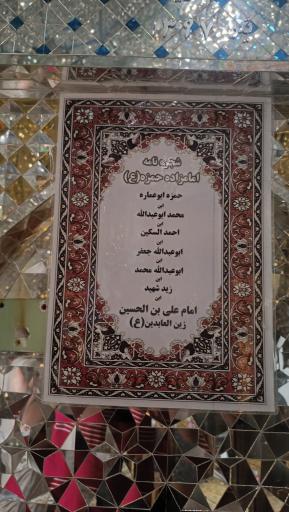 شجره نامه
امامزاده حمزه (ع)
حمزه ابوعماره
ابن
محمد ابوعبدالله
ابن
احمد السکین
ابن
ابوعبدالله جعفر
ابن
ابوعبدالله محمد
ابن
زید شهید
ابن
امام علی بن الحسین
زین العابدین (ع)